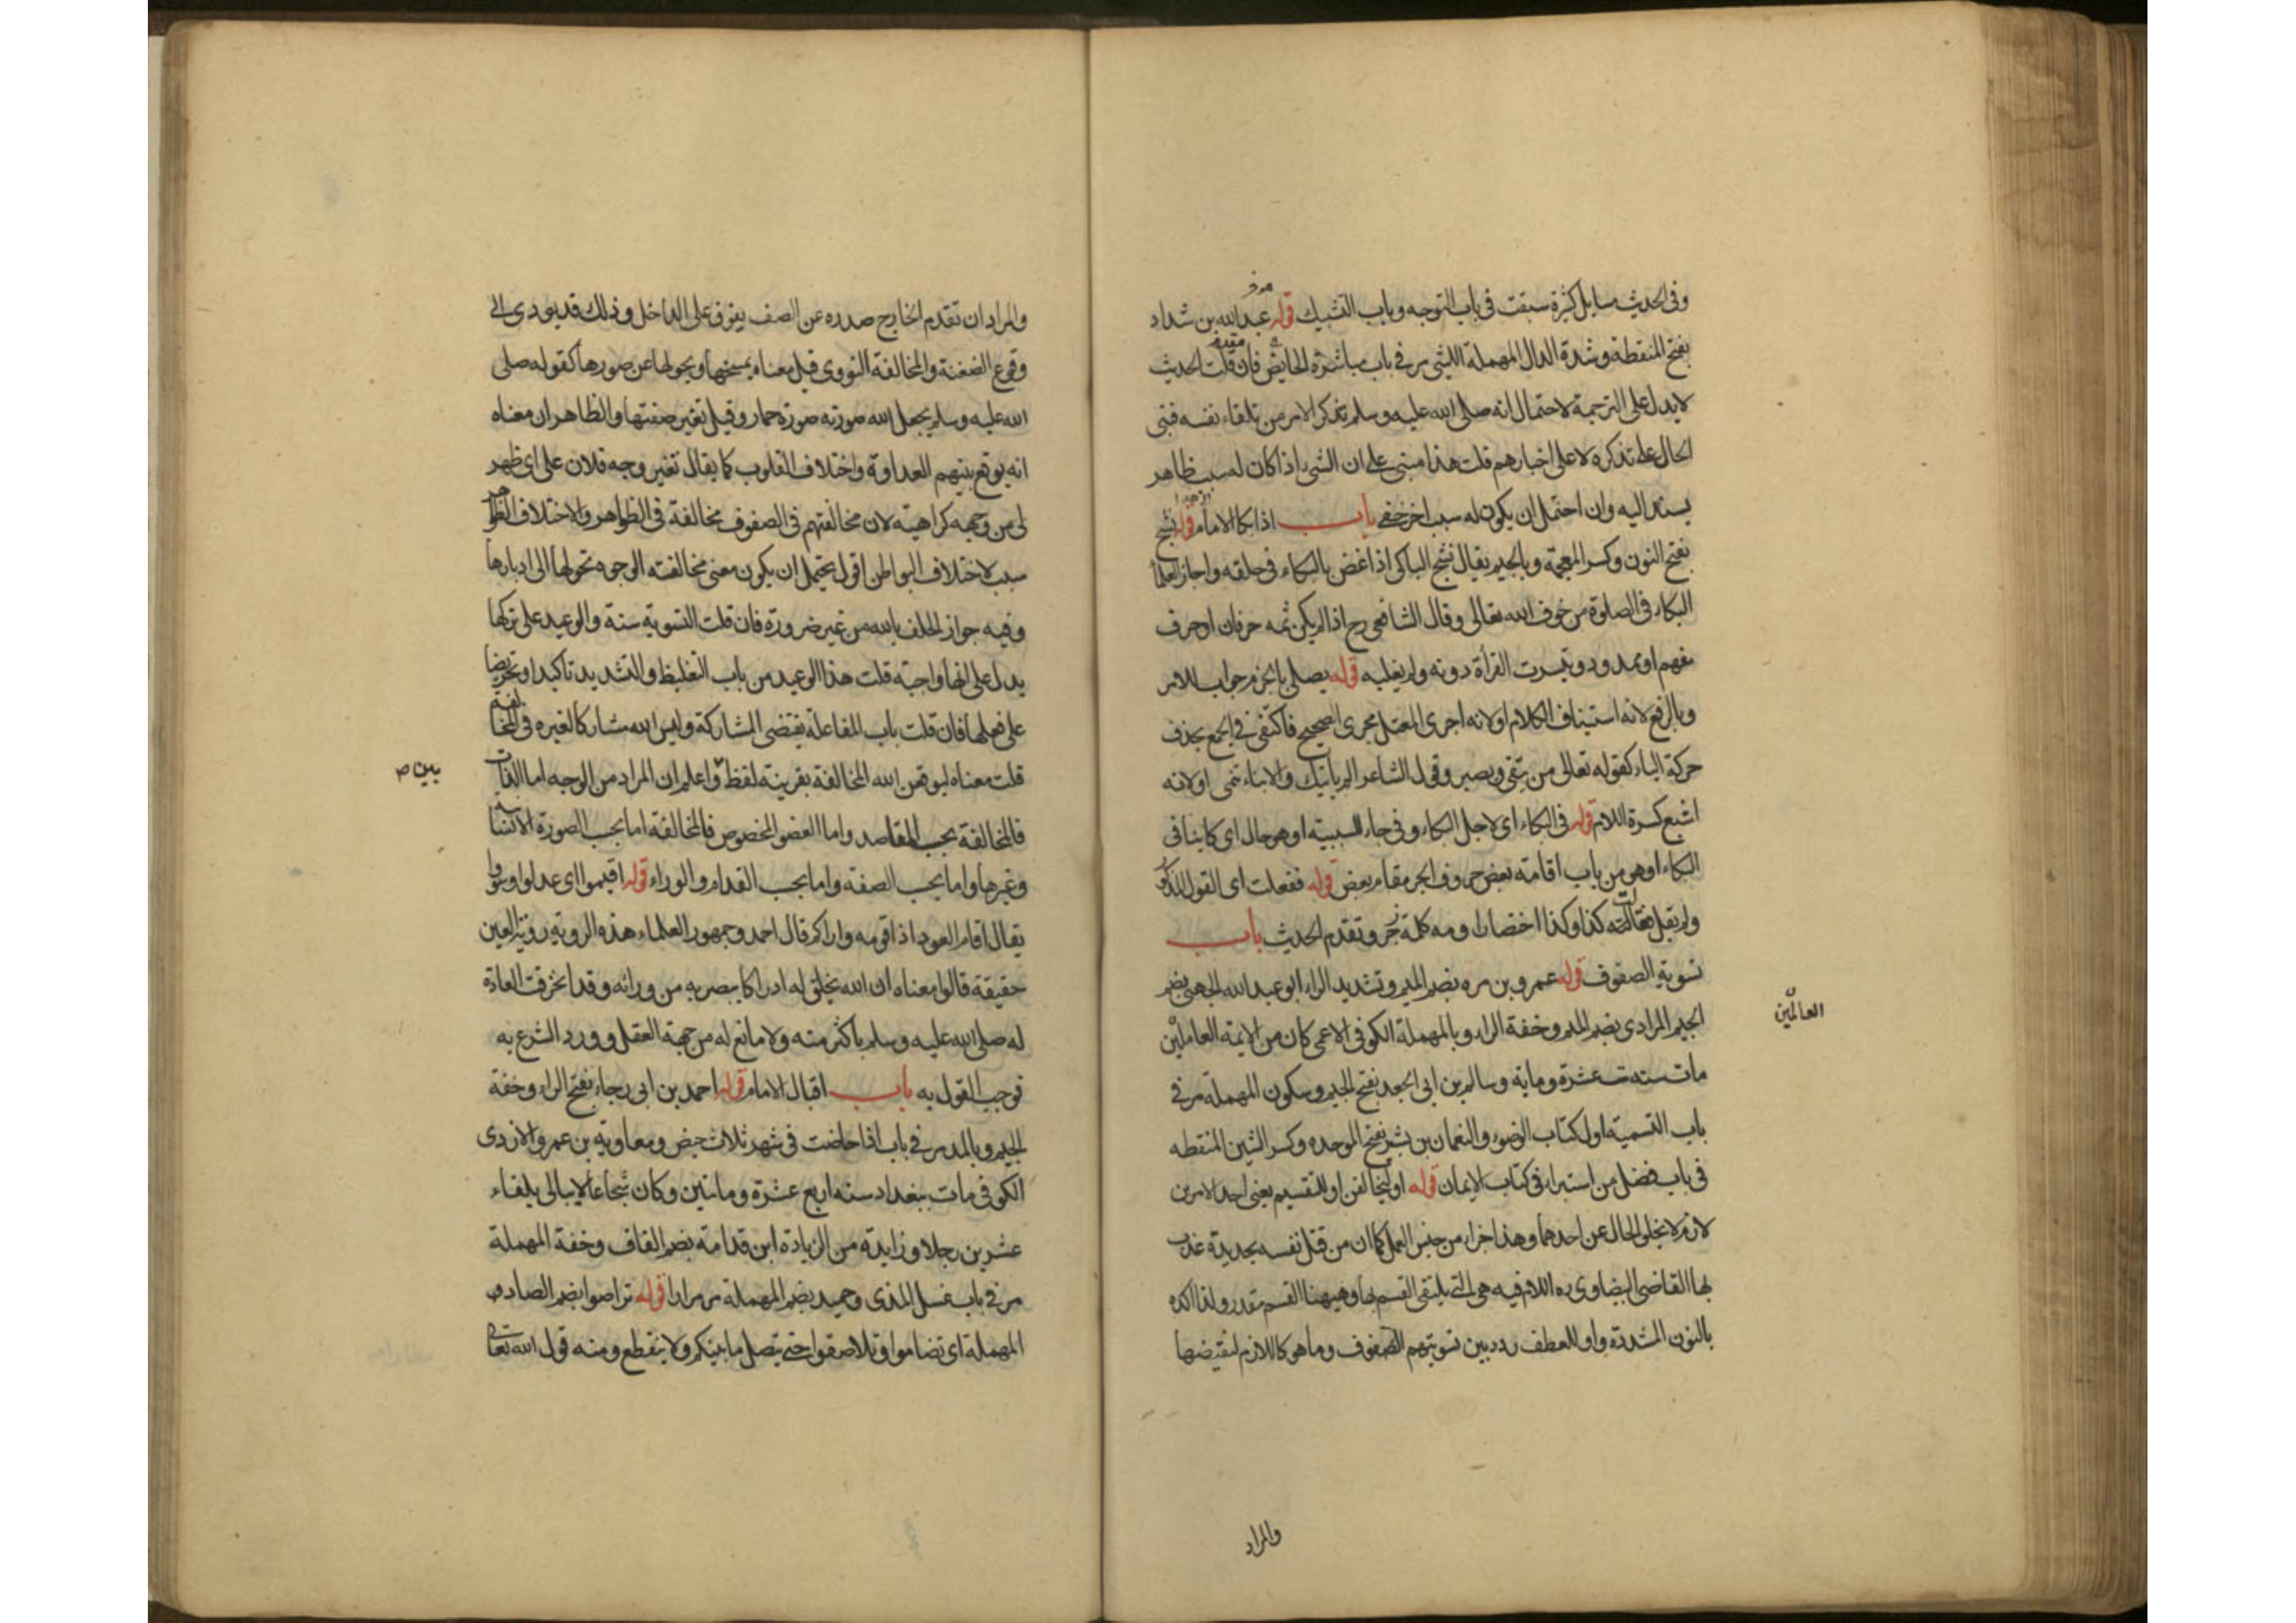 وفى الحديث مسايل كثيرة سبقت فى باب التوجه وباب التشبيك قوله عبد الله بن شداد
بفتح المنقطة وشدة الدال المهملة الليثى مر فى باب مباشرة الحايض فان قلت الحديث
لا يدل على الترجمة لاحتمال انه صلى الله عليه وسلم تذكر الامر من تلقاء نفسه فبنى
الحال على تذكره لا على اخبارهم قلت هذا مبنى على ان الشىء اذا كان له سبب ظاهر
يسند اليه وان احتمل ان يكون له سبب اخر خفى باب اذا بكا الامام قوله نشج
بفتح النون وكسر المعجمة وبالجيم يقال نشج الباكى اذا غض بالبكاء فى حلقه واجاز العلما
البكاء فى الصلوة من خوف الله تعالى وقال الشافعى رح اذا لم يكن ثمه حرفان او حرف
مفهم او ممدود وتيسرت القرأة دونه ولم يغلبه قوله يصلى بالجزم جواب للامر
وبالرفع لانه استيناف الكلام او لانه اجرى المعتل مجرى الصحيح فاكتفى فى الجمع بحذف
حركة الياء كقوله تعالى من يتقى ويصبر وقول الشاعر الم ياتيك والانباء تنمى او لانه
اشبع كسرة اللام قوله فى البكاء اى لاجل البكاء وفى جاء للسببية او هو حال اى كاينا فى
البكاء او هو من باب اقامة بعض حروف الجر مقام بعض قوله ففعلت اى القول المذكور
ولم يقل فقالت له كذا وكذا اختصارا ومه كلمة زجر وتقدم الحديث باب
تسوية الصفوف قوله عمرو بن مره بضم الميم وتشديد الراء ابو عبد الله الجهنى بضم
الجيم المرادى بضم الميم وخفة الراء وبالمهملة الكوفى الاعمى كان من الايمة العاملين
العالمين
مات سنه ست عشرة وماية وسالم بن ابى الجعد بفتح الجيم وسكون المهملة مر فى
باب التسمية اول كتاب الوضوء والنعمان بن بشير بفتح الموحده وكسر الشين المنقطه
فى باب فضل من استبراء فى كتاب الايمان قوله او ليخالفن او للتقسيم يعنى احد الامرين
لازم لا يخلى الحال عن احدهما وهذا جزاء من جنس العمل كما ان من قتل نفسه بحديدة عذب
بها القاضى البيضاوى ره اللام فيه هى التى يلتقى القسم بها وهيهنا القسم مقدر ولذا اكده
بالنون المشددة واو للعطف ردد بين تسويتهم الصفوف وما هو كاللازم لنقيضها
والمراد
والمراد ان تقدم الخارج صدره عن الصف يفوق على الداخل وذلك قد يودى الى
وقوع الضغنة والمخالفة النووى قيل معناه يمسخها ويحولها عن صورها كقوله صلى
الله عليه وسلم يجعل الله صورته صورة حمار وقيل تغير صفتها والظاهر ان معناه
انه يوقع بينهم العداوة واختلاف القلوب كما يقال تغير وجه فلان على اى ظهر
لى من وجهه كراهية لان مخالفتهم فى الصفوف مخالفة فى الظواهر والاختلاف الظواهر
سبب لاختلاف البواطن اقول يحتمل ان يكون معنى مخالفته الوجوه تحولها الى ادبارها
وفيه جواز الحلف بالله من غير ضرورة فان قلت التسوية سنة والوعيد على تركها
يدل على انها واجبة قلت هذا الوعيد من باب التغليظ والتشديد تاكيدا وتحريضا
على فعلها فان قلت باب المفاعلة يقتضى المشاركة وليس الله مشاركا لغيره فى المخالفة
قلت معناه ليوقعن الله المخالفة بقرينة لفظ واعلم ان المراد من الوجه اما الذات
بين ص
فالمخالفة بحسب المقاصد واما العضو المخصوص فالمخالفة اما بحسب الصورة الانسانية
وغيرها واما بحسب الصفه واما بحسب القدام والوراء قوله اقيموا اى عدلوا وسووا
يقال اقام العود اذا قومه واراكم قال احمد وجمهور العلماء هذه الروية روية العين
حقيقة قالوا معناه ان الله يخلق له ادراكا يبصر به من ورائه وقد انخرقت العادة
له صلى الله عليه وسلم باكثر منه ولا مانع له من جهة العقل وورد الشرع به
فوجب القول به باب اقبال الامام قوله احمد بن ابى رجاء بفتح الراء وخفة
الجيم وبالمد مر فى باب اذا حاضت فى شهر ثلاث حيض ومعاوية بن عمرو الازدى
الكوفى مات ببغداد سنه اربع عشرة وماتين وكان شجاعا لا يبالى بلقاء
عشرين رجلا وزايدة من الزيادة ابن قدامة بضم القاف وخفة المهملة
مر فى باب غسل المذى وحميد بضم المهملة مر مرارا قوله تراصوا بضم الصاد
المهملة اى تضاموا وتلاصقوا حتى يتصل ما بينكم ولا ينقطع ومنه قول الله تعالى